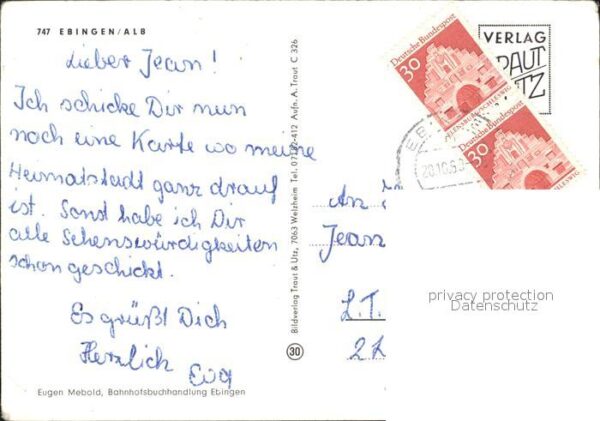 747 EBINGEN/ALB
Lieber Jean!
Ich schicke Dir nun
noch eine Karte wo meine
Heimatstadt ganz drauf
ist. Sonst habe ich Dir
alle Sehenswürdigkeiten
schon geschickt.
Es grüßt Dich
Herzlich
Eva
Eugen Mebold, Bahnhofsbuchhandlung Ebingen
Bildverlag Traut & Utz, 7063 Welzheim Tel. 07182-412 Aufn. A. Traut C 326
30
VERLAG
Deutsche Bundespost
30
FLENSBURG/SCHLESWIG
Deutsche Bundespost
30
SCHLESWIG
An
Jean
L.T.
privacy protection
Datenschutz